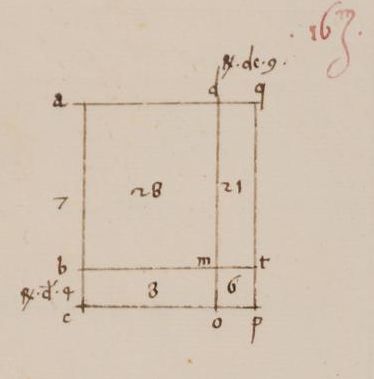 . 163 .
℞. de. 9.
a d q
7 28 21
b m t
℞. d. 4 8 6
c o p